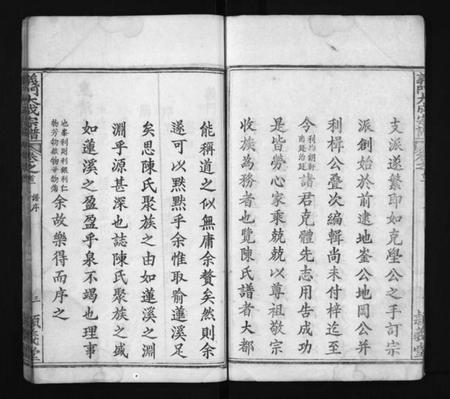 支派遂繁印如克壆公之手訂宗
派創始於前逮地崟公地岡公并
利楫公疊次編輯尚未付梓迄至
今利治朗軒西治延諸君克體先志用告成功
是皆勞心家乘兢兢以尊祖敬宗
收族為務者也覽陳氏譜者大都
能稱道之似無庸余贅矣然則余
遂可以默默乎余惟取喻蓮溪足
矣思陳氏聚族之由如蓮溪之淵
淵乎源甚深也誌陳氏聚族之盛
如蓮溪之盈盈乎泉不竭也理事
余故樂得而序之
義門大成宗譜
卷之
譜序
三
義門大成宗譜
卷之